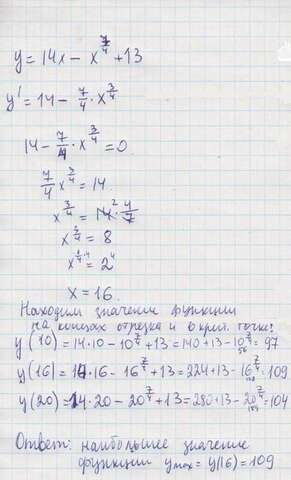 y = 14x - x^(7/4) + 13
y' = 14 - 7/4 · x^(3/4)
14 - 7/4 · x^(3/4) = 0
7/4 x^(3/4) = 14
x^(3/4) = 14² · 4/7
x^(3/4) = 8
x^(1/4·4) = 2^4
x = 16.
Находим значение функции
на концах отрезка и в крит. точке:
y(10) = 14·10 - 10^(7/4) + 13 = 140 + 13 - 10^(7/4) = 97
56
y(16) = 14·16 - 16^(7/4) + 13 = 224 + 13 - 16^(7/4) = 109
128
y(20) = 14·20 - 20^(7/4) + 13 = 280 + 13 - 20^(7/4) = 104
189
Ответ: наибольшее значение
функции y max = y(16) = 109